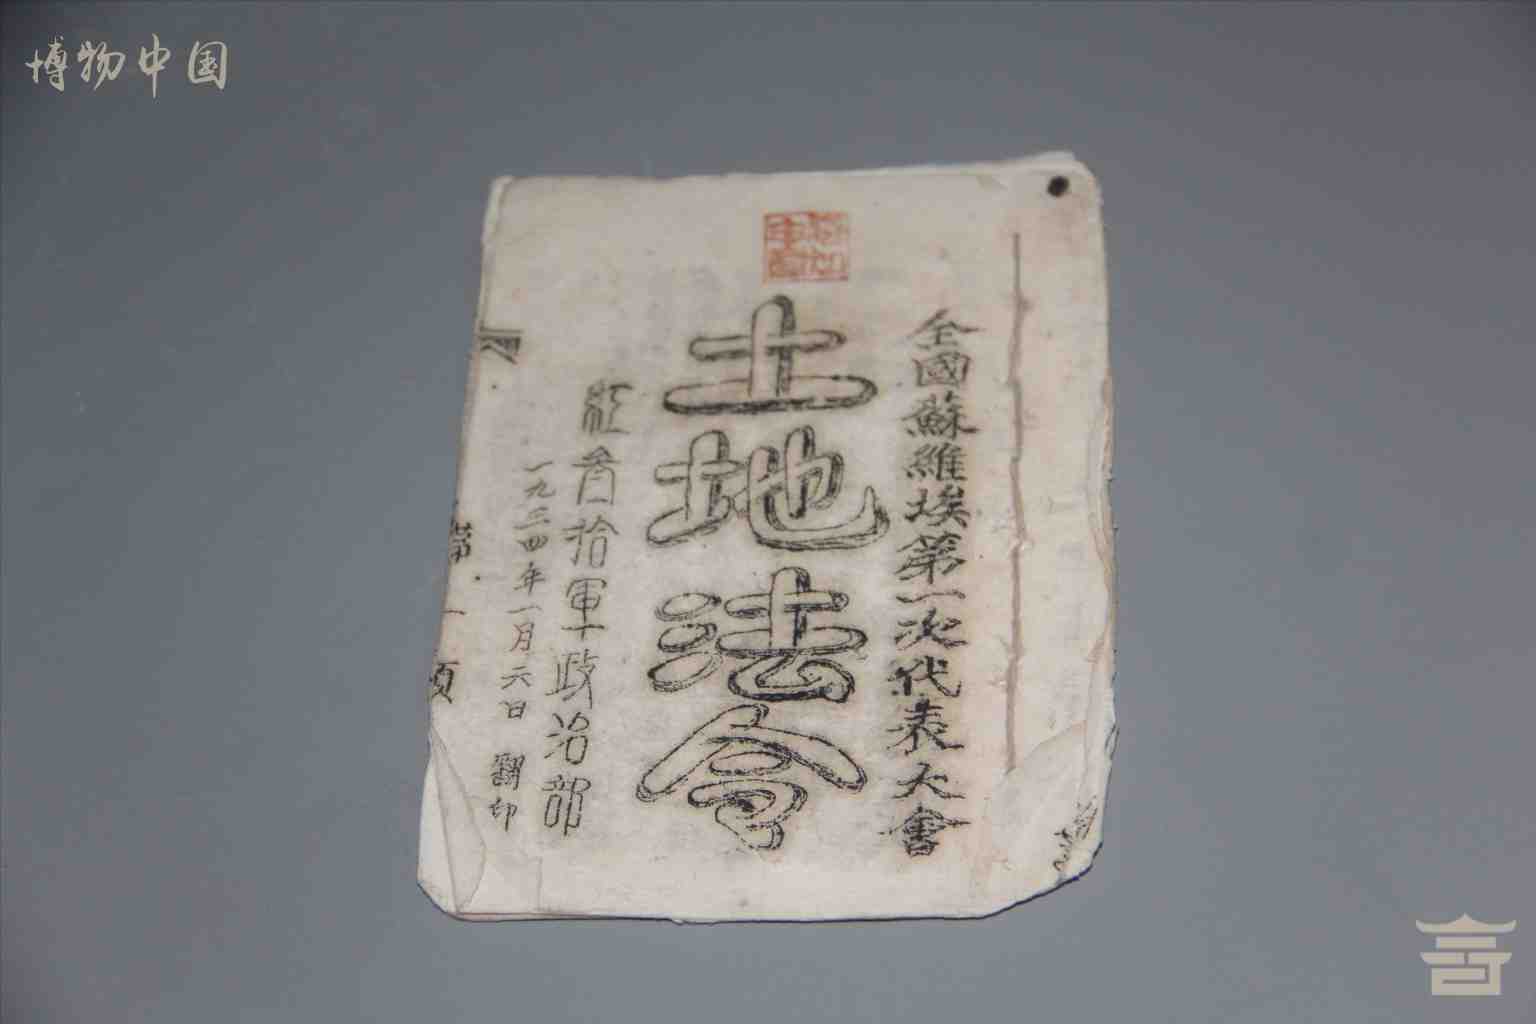 博物中国
全國蘇維埃第一次代表大會
土地法令
紅首拾軍政治部
一九三四年一月六日 翻印